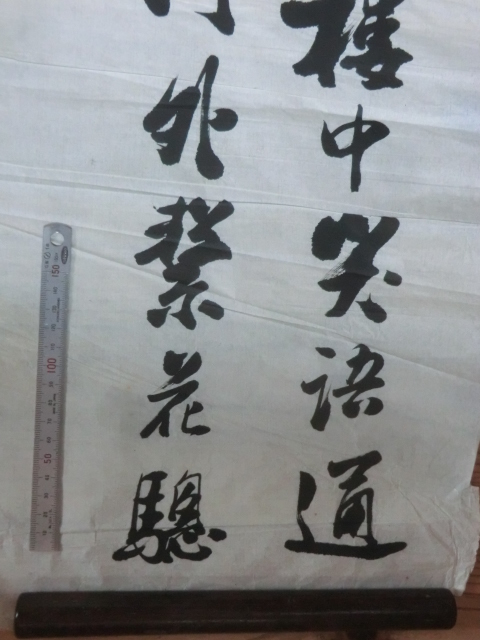 樓中笑語通
外繫花驄
150
100
50